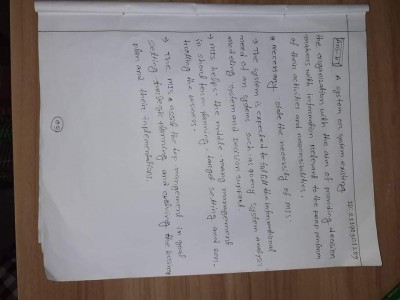 Ans-01 A system or system existing
the organization with the aim of providing decision
makers with information relevant to the
of their activities and responsibilities.
* necessary state the necessity of MIS:
→ The system is expected to fulfill the informational
need of an system such inquiry system analysis
modeling system and decision support
→ MIS helps the middle management
in short term planning, target setting and con-
trolling the business.
→ The MIS aced the top management in goal
setting strategic planning and evolving the business
plan and their implementation.